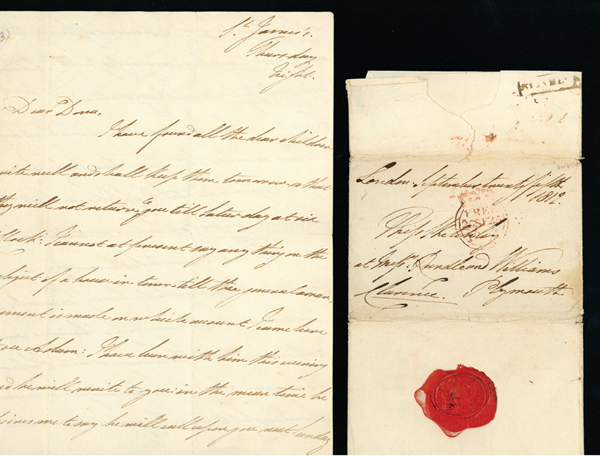 St. James's
Thursday
Night.
Dear Dora,
I have found all the dear children
quite well and shall keep them tomorrow so that
they will not return to you till Saturday at six
o'clock: I cannot at present say any thing on the
subject of a house in town till the general arran
gement is made on which account I came here
to see Adam: I have been with him this evening
and he will write to you: in the mean time he
desires me to say he will call upon you next Sunday
London September twenty fifth
1812
FREE
at Messrs. Rundle and Williams
Clarence. Plymouth